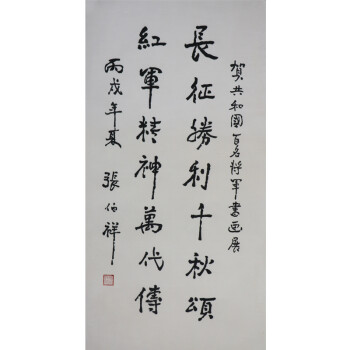 賀共和國百名将军書画展
長征勝利千秋頌
紅軍精神萬代傳
丙戌年夏 張伯祥